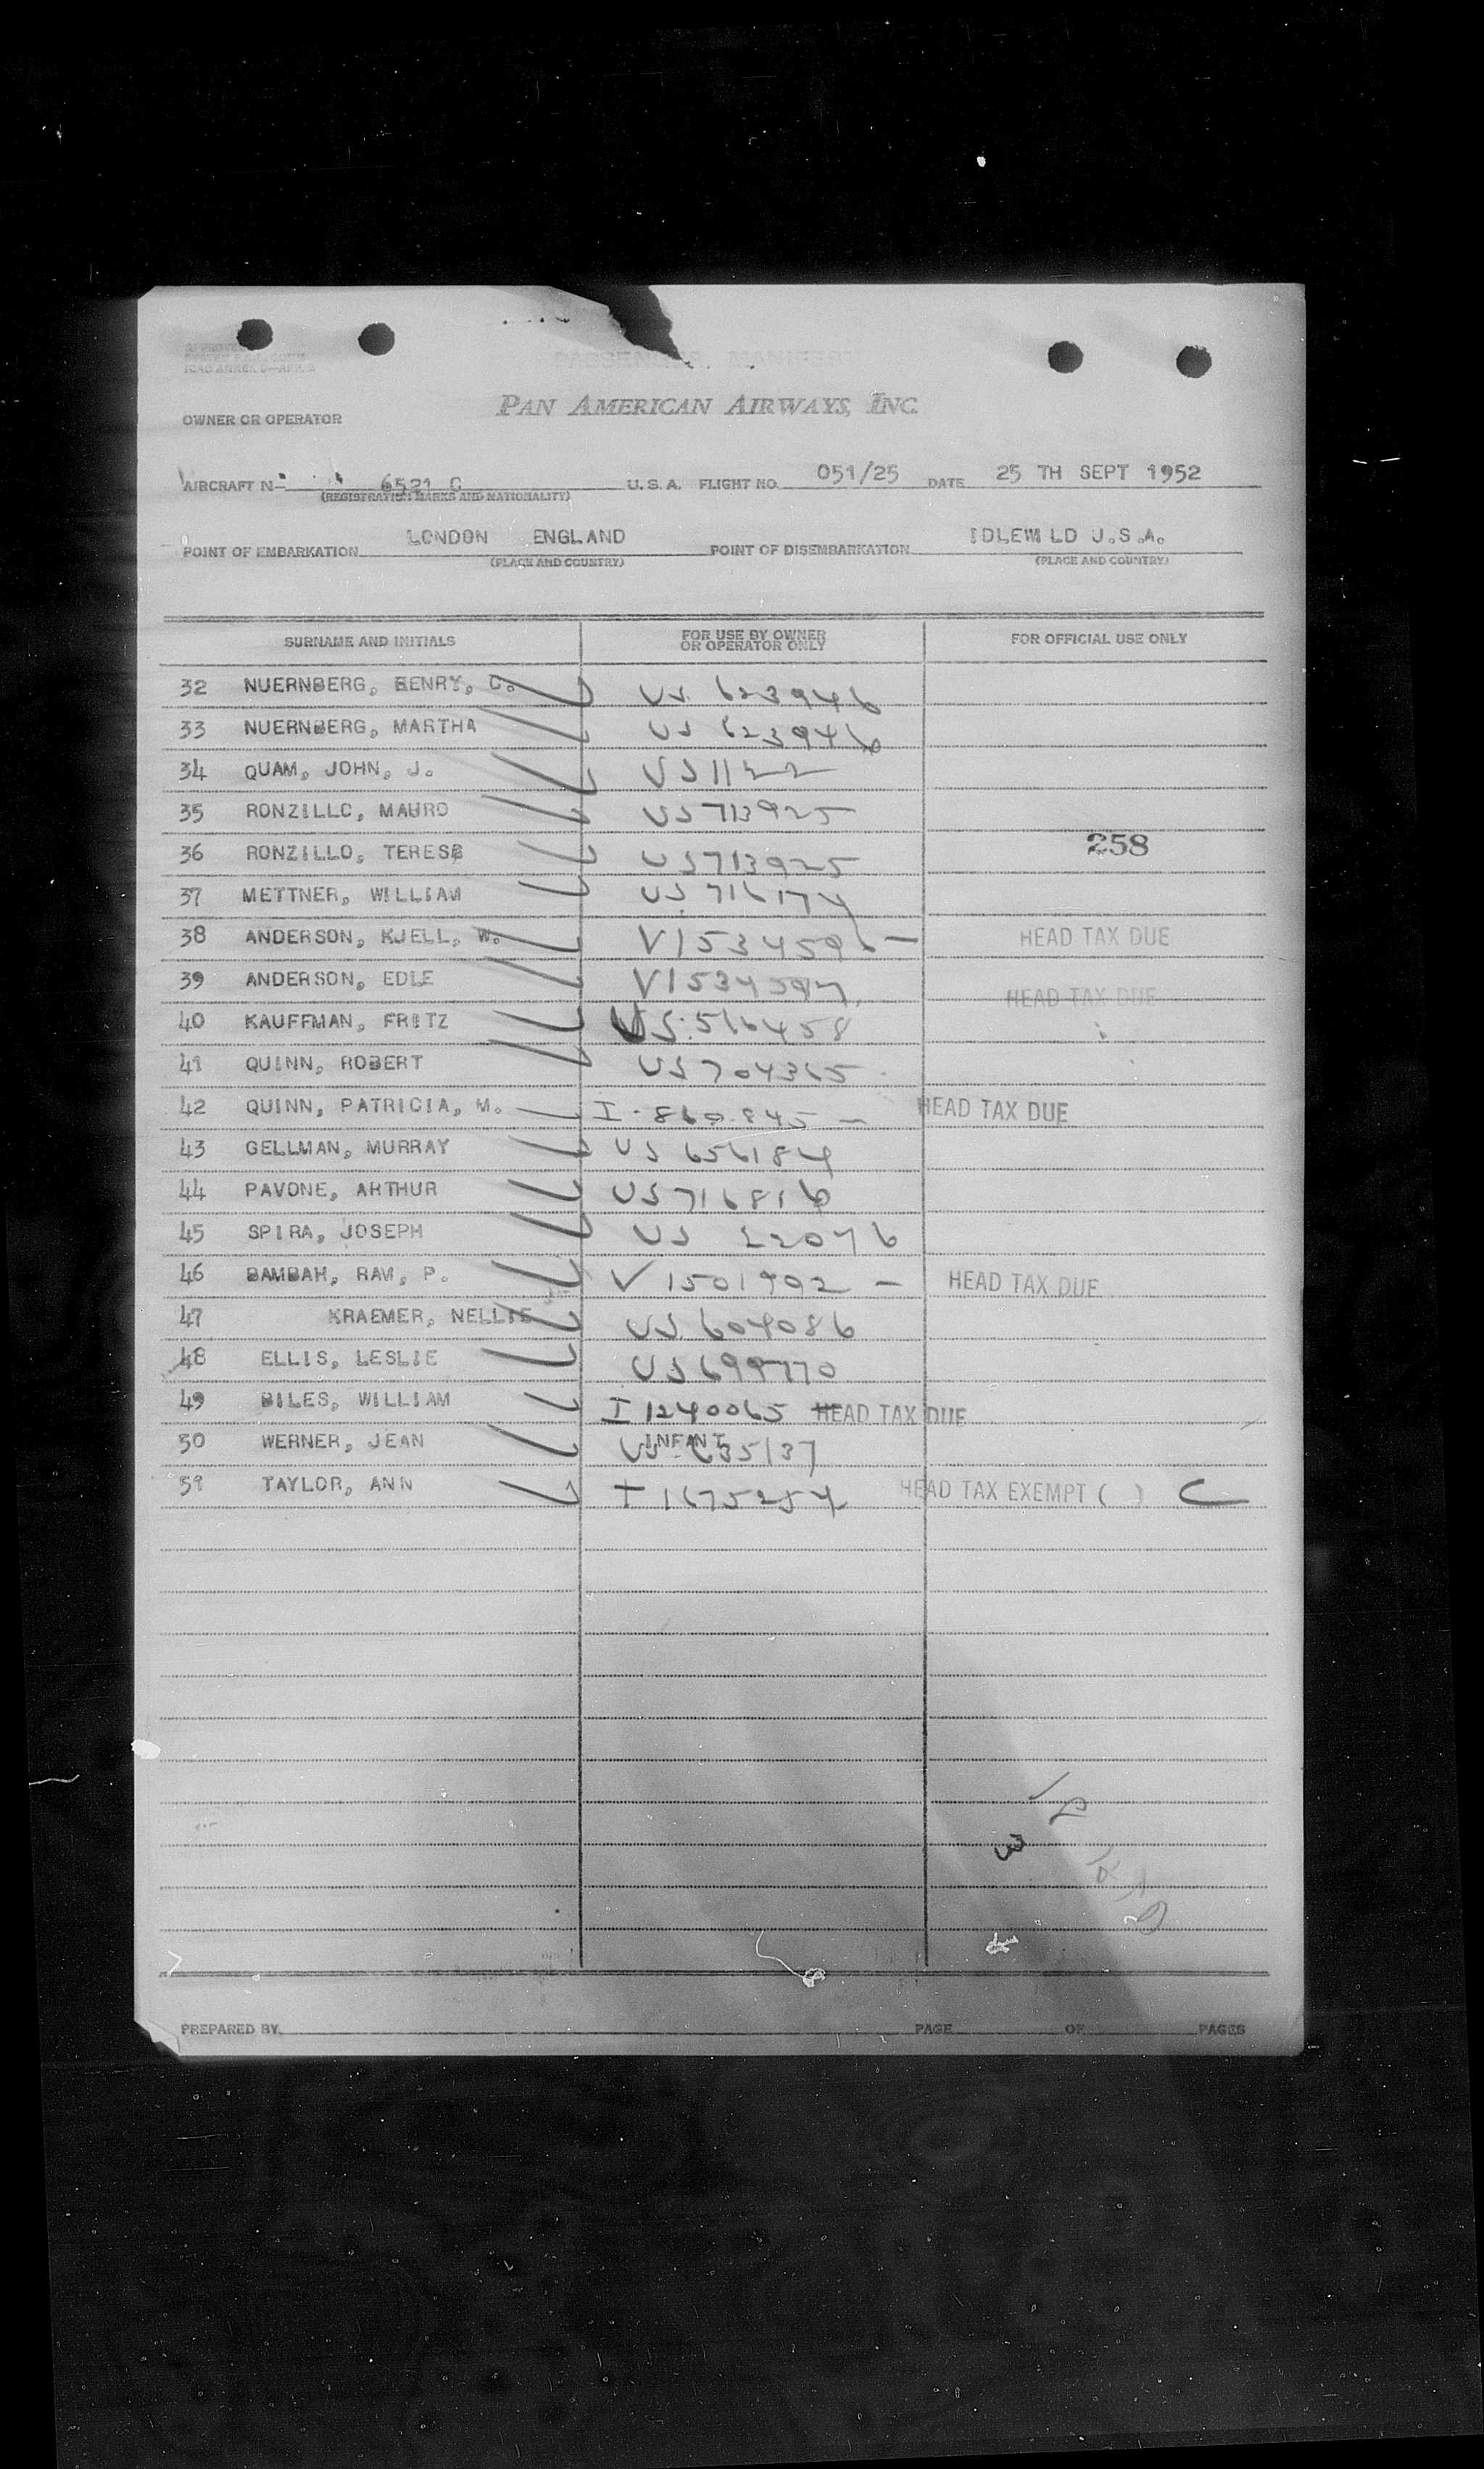 PASSENGER MANIFEST
ICAO ANNEX 9—APP. 2
OWNER OR OPERATOR PAN AMERICAN AIRWAYS, INC.
AIRCRAFT N- 6521 C U. S. A. FLIGHT NO. 051/25 DATE 25 TH SEPT 1952
(REGISTRATION MARKS AND NATIONALITY)
POINT OF EMBARKATION LONDON ENGLAND POINT OF DISEMBARKATION IDLEWILD U.S.A.
(PLACE AND COUNTRY) (PLACE AND COUNTRY)
SURNAME AND INITIALS FOR USE BY OWNER OR OPERATOR ONLY FOR OFFICIAL USE ONLY
32 NUERNBERG, HENRY, C. US 623946
33 NUERNBERG, MARTHA US 623946
34 QUAM, JOHN, J. US 1122
35 RONZILLO, MAURO US 713925
36 RONZILLO, TERESE US 713925 258
37 METTNER, WILLIAM US 716174
38 ANDERSON, KJELL, W. V 1534596 — HEAD TAX DUE
39 ANDERSON, EDLE V 1534597 HEAD TAX DUE
40 KAUFFMAN, FRITZ US 516458
41 QUINN, ROBERT US 704365
42 QUINN, PATRICIA, M. I-860845 — HEAD TAX DUE
43 GELLMAN, MURRAY US 656184
44 PAVONE, ARTHUR US 716816
45 SPIRA, JOSEPH US 22076
46 BAMBAH, RAM, P. V 1501992 — HEAD TAX DUE
47 KRAEMER, NELLIE US 604086
48 ELLIS, LESLIE US 699770
49 BILES, WILLIAM I 1240065 HEAD TAX DUE
50 WERNER, JEAN INFANT US 635137
51 TAYLOR, ANN I 1675254 HEAD TAX EXEMPT ( ) C
3
PREPARED BY PAGE OF PAGES